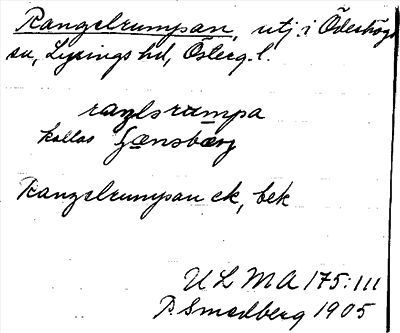 Rangelrumpan, utj. i Ödeshögs
sn, Lysings hd, Österg. l.
raŋlsrumpa
kallas Gænsbærj
Rangelrumpan ek, bek
ULMA 175:111
P. Smedberg 1905